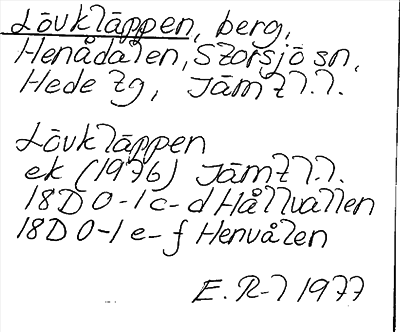 Lövkläppen, berg,
Henådalen, Storsjö sn,
Hede tg, Jämtl.l.
Lövkläppen
ek (1976) Jämtl.l.
18D 0-1 c-d Hållvallen
18D 0-1 e-f Henvålen
E. R-l 1977